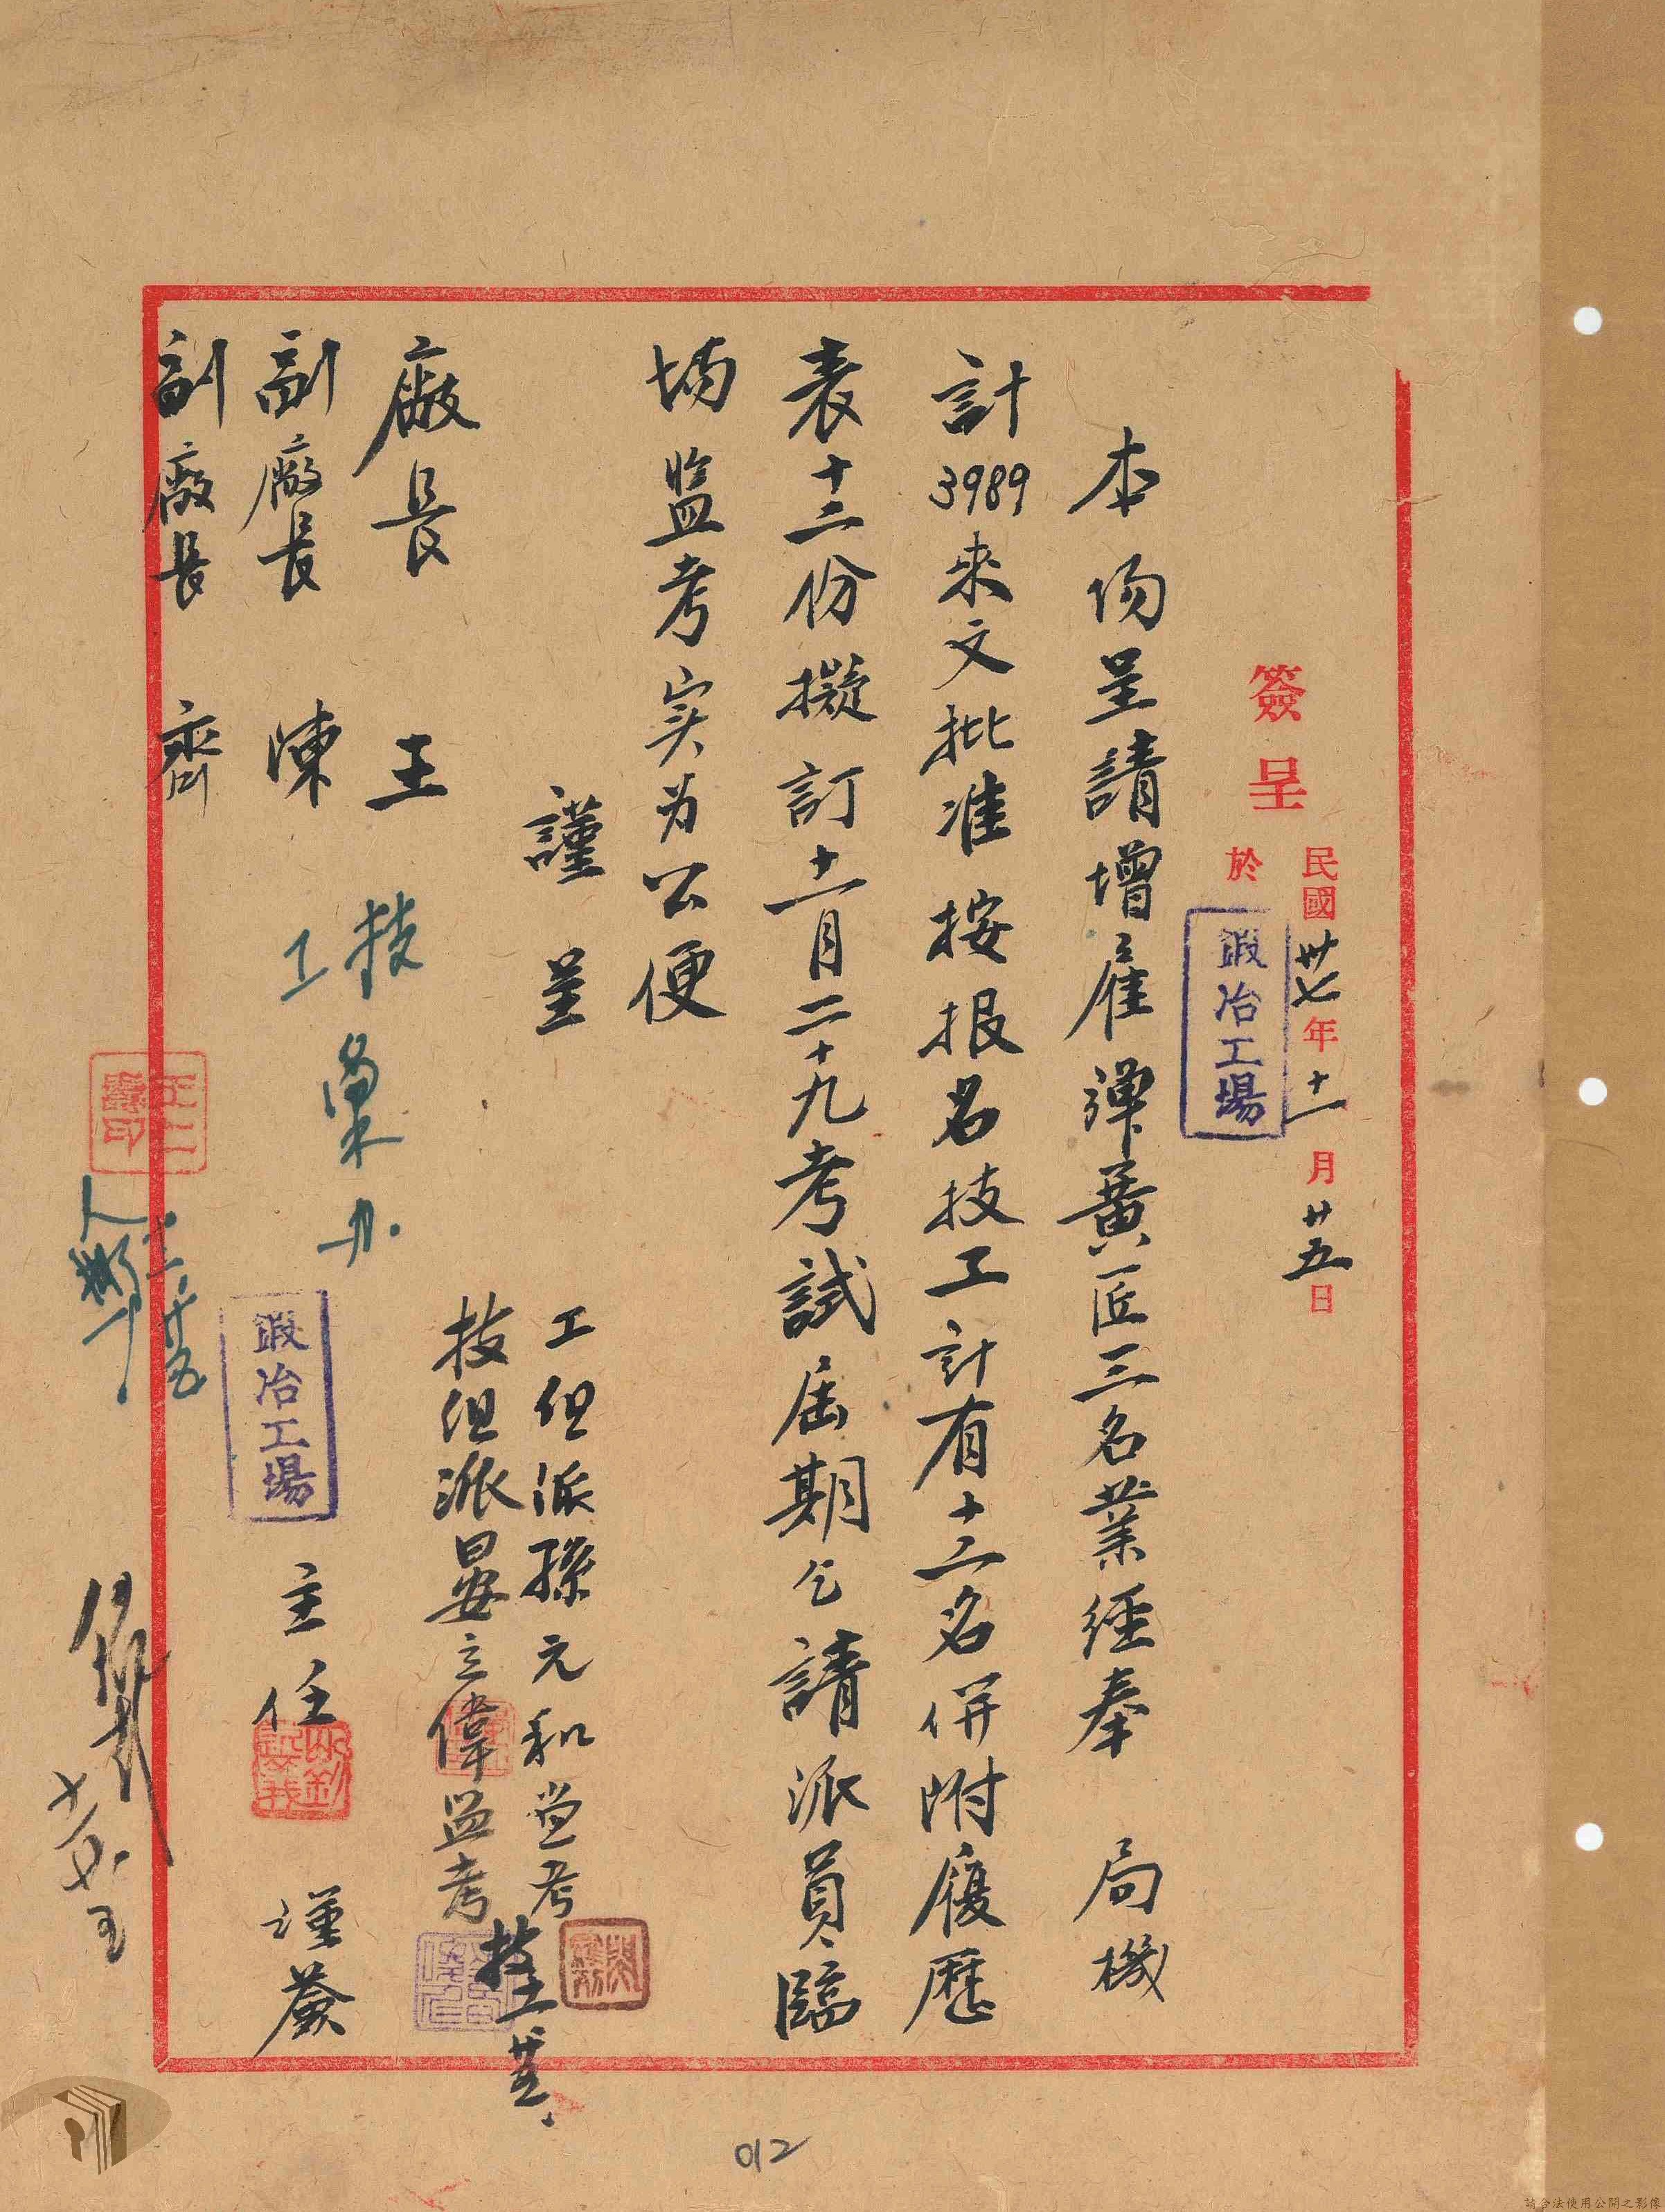 簽呈
民國卅七年十一月廿五日
於鍛冶工場
本场呈請增雇彈簧匠三名業經奉 局機
計3989來文批准按报名技工計有十三名併附履歷
表十三份擬訂十一月二十九考試屆期乞請派員臨
塲监考实为公便
謹呈
廠長 王
副廠長 陳
副廠長 齊
技
工
彙办
工组派孫元和监考
技组派晏立偉监考
鍛冶工場 主任 謹簽
012
請合法使用公開之影像